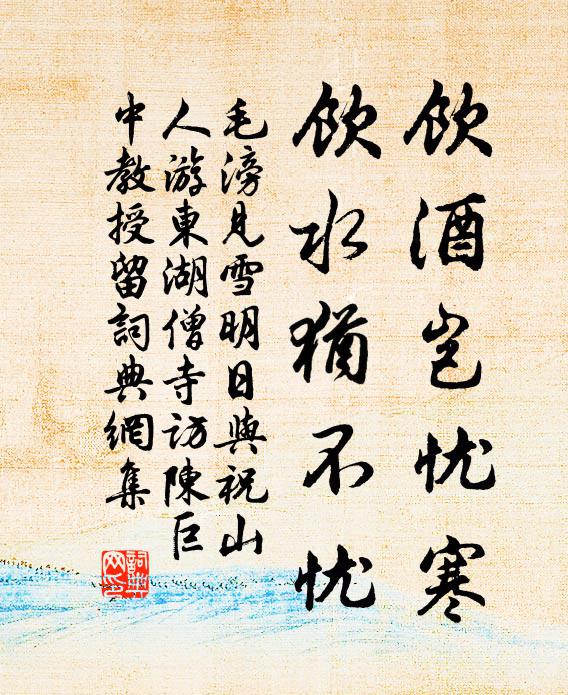 飲酒豈忧寒
飲水猶不忧
毛滂見雪明日與祝山
人游東湖僧寺訪陳巨
中教授留詞典網集
詞典網